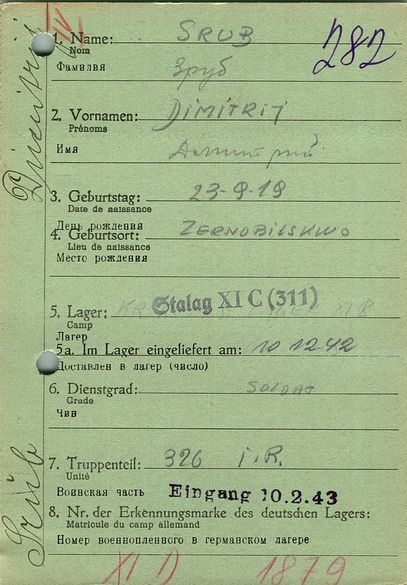 282
1. Name: SRUB
Nom
Фамилия Зруб
2. Vornamen: DIMITRIJ
Prénoms
Имя
3. Geburtstag: 23-9-19
Date de naissance
День рождения
4. Geburtsort: ZERNOBILSKWO
Lieu de naissance
Место рождения
5. Lager: Stalag XI C (311)
Camp
Лагерь
5a. Im Lager eingeliefert am: 10 12 42
Доставлен в лагер (число)
6. Dienstgrad: SOLDAT
Grade
Чин
7. Truppenteil: 326 I.R.
Unité
Воинская часть Eingang 10.2.43
8. Nr. der Erkennungsmarke des deutschen Lagers:
Matricule du camp allemand
Номер военнопленного в германском лагере
XI D 1879
Srub Dimitrij